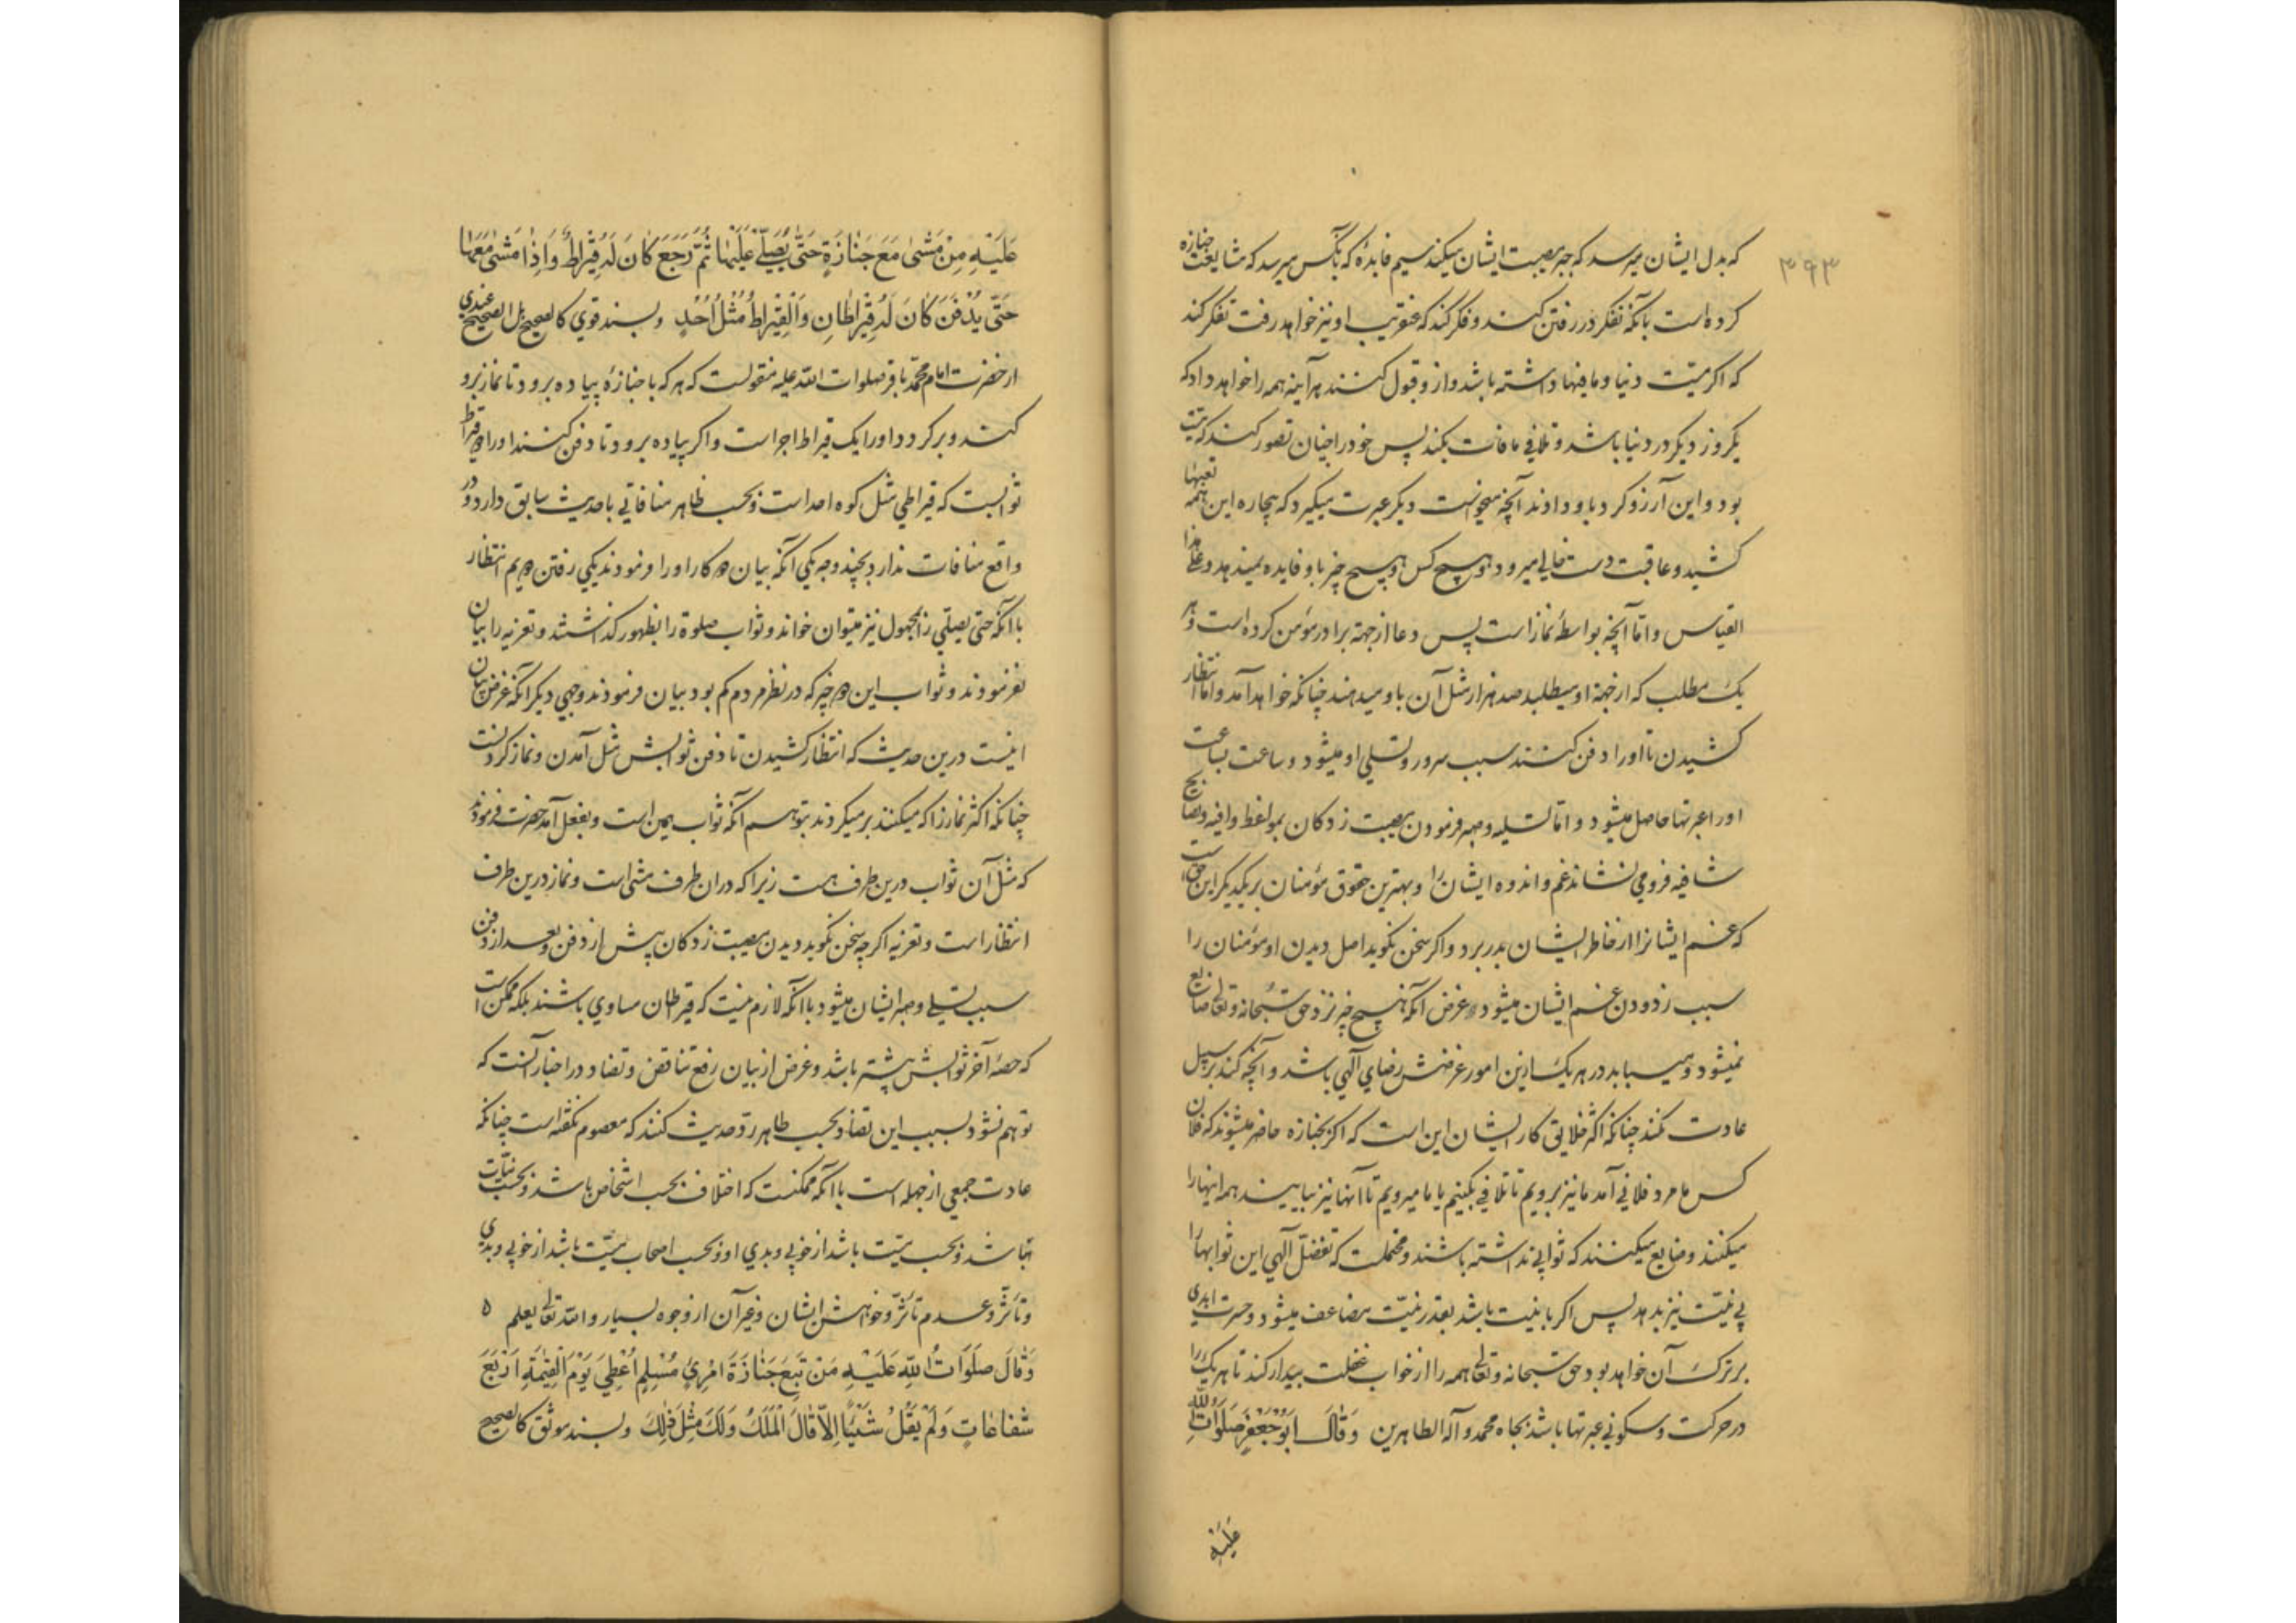 ۳۹۳
که بدل ایشان میرسد که جبر مصیبت ایشان میکند سیم فایدهٔ که بآنکس میرسد که مشایعت جنازه
کرده است بآنکه تفکر در رفتن کند و فکر کند که عنقریب او نیز خواهد رفت تفکر کند
که اگر میّت دنیا و ما فیها داشته باشد و از و قبول کنند هر آینه همه را خواهد داد که
یکروز دیگر در دنیا باشد و تلافی مافات بکند پس خود را چنان تصور کند که میّت
بود و این آرزو کرد باو دادند آنچه میخواست دیگر عبرت میگیرد که بیچاره این همه تعبها
کشید و عاقبت دست خالی میرود و هیچ کس و هیچ چیز باو فایده نمیدهد و علی هذا
القیاس و امّا آنچه بواسطهٔ نماز است پس دعا از جهة برادر مؤمن کرده است و هر
یک مطلب که از جهة او میطلبد صد هزار مثل آن باو میدهند چنانکه خواهد آمد و امّا انتظار
کشیدن تا او را دفن کنند سبب سرور و تسلی او میشود و ساعت بساعت
او را عبرتها حاصل میشود و امّا تسلیه و صبر فرمودن مصیبت زدکان بمواعظ وافیه و نصایح
شافیه فرو می نشاند غم و اندوه ایشان را و بهترین حقوق مؤمنان بر یکدیگر این حق است
که غم ایشانرا از خاطر ایشان بدر برد و اگر سخن نکوید اصل دیدن او مؤمنان را
سبب زدودن غم ایشان میشود و غرض آنکه هیچ چیز نزد حق سُبحانه و تعالی ضایع
نمیشود و میباید در هر یک ازین امور غرضش رضای آلهی باشد و آنچه کند بر سبیل
عادت نکند چنانکه اکثر خلایق کار ایشان این است که اکر بجنازه حاضر میشوند که فلان
کس ما مرد فلانی آمد ما نیز برویم تا تلافی بکنیم یا ما میرویم تا آنها نیز بیایند همه اینها را
میکنند و ضایع میکنند که ثوابی نداشته باشند و محتملست که تفضّل آلهی این ثوابها را
بی نیّت نیز بدهد پس اکر با نیت باشد بقدر نیّت مضاعف میشود و حسرت ابدی
بر ترک آن خواهد بود حق سبحانه و تعالی همه را از خواب غفلت بیدار کند تا هر یک را
در حرکت و سکونی عبرتها باشد بجاه محمد و آله الطاهرین وَقَالَ اَبُو جَعْفَرٍ صَلَوَاتُ اللّٰهِ
عَلَیْهِ
عَلَیْهِ مِنْ مَشٰی مَعَ جَنَازَةٍ حَتّٰی یُصَلّٰی عَلَیْهَا ثُمَّ رَجَعَ کَانَ لَهُ قِیْرَاطٌ وَاِذَا مَشٰی مَعَهَا
حَتّٰی یُدْفَنَ کَانَ لَهُ قِیْرَاطَانِ وَالْقِیْرَاطُ مِثْلُ اُحُدٍ و بسند قوی کالصحیح بل الصحیح عندی
از حضرت امام محمّد باقر صلوات الله علیه منقولست که هر که با جنازهٔ پیاده برود تا نماز برو
کنند و بر کردد او را یک قیراط اجر است و اکر پیاده برود تا دفن کنند او را دو قیراط
ثوابست که قیراطی مثل کوه احد است و بحسب ظاهر منافاتی با حدیث سابق دارد و در
واقع منافات ندارد بچند وجه یکی آنکه بیان دو کار او را فرمودند یکی رفتن دویم انتظار
با آنکه حتی یصلّی را مجهول نیز میتوان خواند و ثواب صلوة را بظهور کذاشتند و تعزیه را بیان
نفرمودند و ثواب این دو چیز که در نظر مردم کم بود بیان فرمودند وجهی دیکر آنکه غرض بیان
اینست درین حدیث که انتظار کشیدن تا دفن ثوابش مثل آمدن و نماز کردنست
چنانکه اکثر نماز را که میکنند بر میکردند بتوهم آنکه ثواب همین است و بفعل آمد حضرت فرمودند
که مثل آن ثواب درین طرف هست زیرا که دران طرف مشی است و نماز درین طرف
انتظار است و تعزیه اکر چه سخن نکوید و دیدن مصیبت زدکان پیش از دفن و بعد از دفن
سبب تسلی و صبر ایشان میشود با آنکه لازم نیست که قیراطان مساوی باشند بلکه ممکن است
که حصّهٔ آخر ثوابش بیشتر باشد و غرض از بیان رفع تناقض و تضاد در اخبار آنست که
توهم نشود بسبب این تضاد بحسب ظاهر رد حدیث کنند که معصوم نکفته است چنانکه
عادت جمعی از جهله است با آنکه ممکنست که اختلاف بحسب اشخاص باشد و بحسب نیّات
باشد و بحسب میّت باشد از خوبی و بدی او و بحسب اصحاب میّت باشد از خوبی و بدی
و تأثّر و عدم تأثّر و خواهش ایشان و غیر آن از وجوه بسیار و الله تعالی یعلم ٥
وَقَالَ صَلَوَاتُ اللّٰهِ عَلَیْهِ مَنْ تَبِعَ جَنَازَةَ امْرِئٍ مُسْلِمٍ اُعْطِیَ یَوْمَ الْقِیٰمَةِ اَرْبَعَ
شَفَاعَاتٍ وَلَمْ یَقُلْ شَیْئًا اِلَّا قَالَ الْمَلَکُ وَلَکَ مِثْلُ ذٰلِکَ و بسند موثق کالصحیح